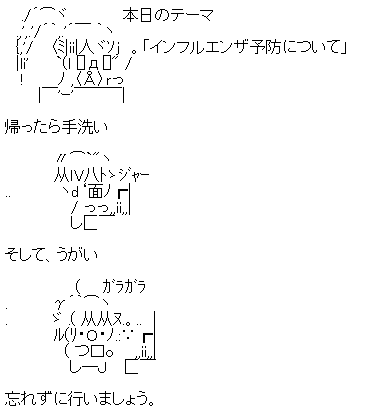 本日のテーマ
「インフルエンザ予防について」
帰ったら手洗い
ｼﾞｬｰ
そして、うがい
ｶﾞﾗｶﾞﾗ
忘れずに行いましょう。